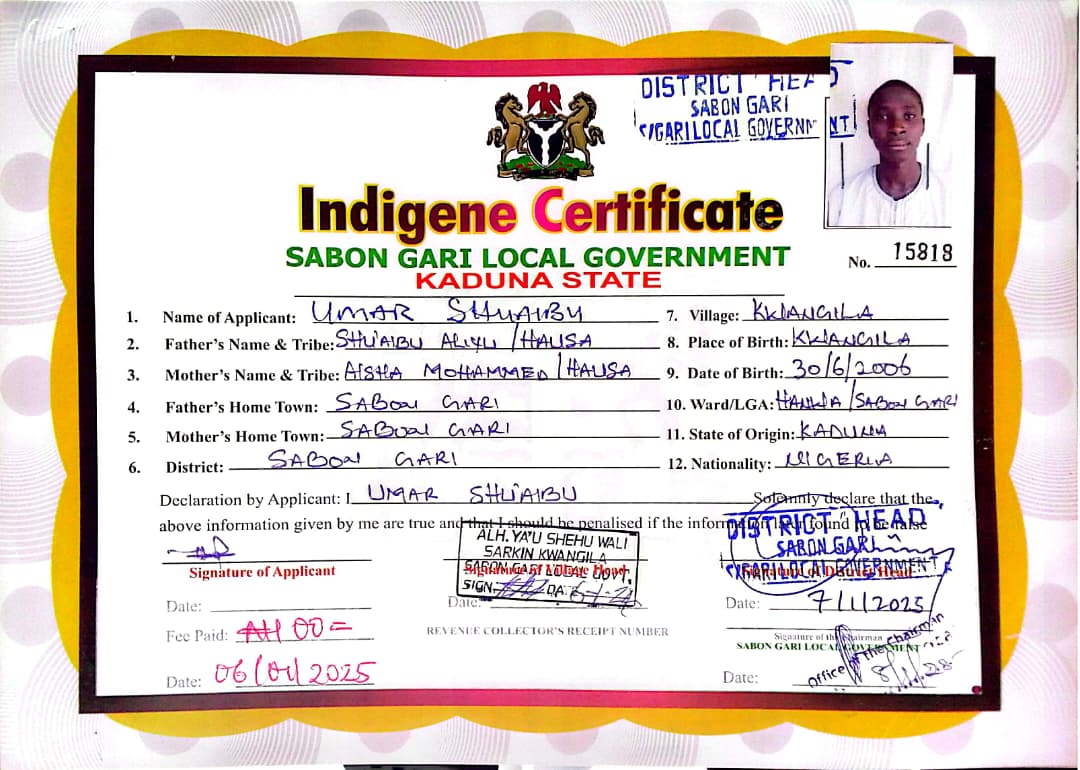 DISTRICT HEAD
SABON GARI
S/GARI LOCAL GOVERNMENT
Indigene Certificate
SABON GARI LOCAL GOVERNMENT
KADUNA STATE
No. 15818
1. Name of Applicant: UMAR SHUAIBU
2. Father's Name & Tribe: SHU'AIBU ALIYU / HAUSA
3. Mother's Name & Tribe: AISHA MOHAMMED / HAUSA
4. Father's Home Town: SABON GARI
5. Mother's Home Town: SABON GARI
6. District: SABON GARI
7. Village: KWANGILA
8. Place of Birth: KWANGILA
9. Date of Birth: 30/6/2006
10. Ward/LGA: HANWA / SABON GARI
11. State of Origin: KADUNA
12. Nationality: NIGERIA
Declaration by Applicant: I UMAR SHU'AIBU Solemnly declare that the
above information given by me are true and that I should be penalised if the information found to be false
Signature of Applicant
Date:
Fee Paid:
Date: 06/01/2025
ALH. YA'U SHEHU WALI
SARKIN KWANGILA
SABON GARI LOCAL GOVT.
SIGN. DA
Signature of Village Head
Date:
REVENUE COLLECTOR'S RECEIPT NUMBER
DISTRICT HEAD
SABON GARI
S/GARI LOCAL GOVERNMENT
Signature of District Head
Date: 7/1/2025
Signature of the Chairman
SABON GARI LOCAL GOVERNMENT
Office of The Chairman
Date: